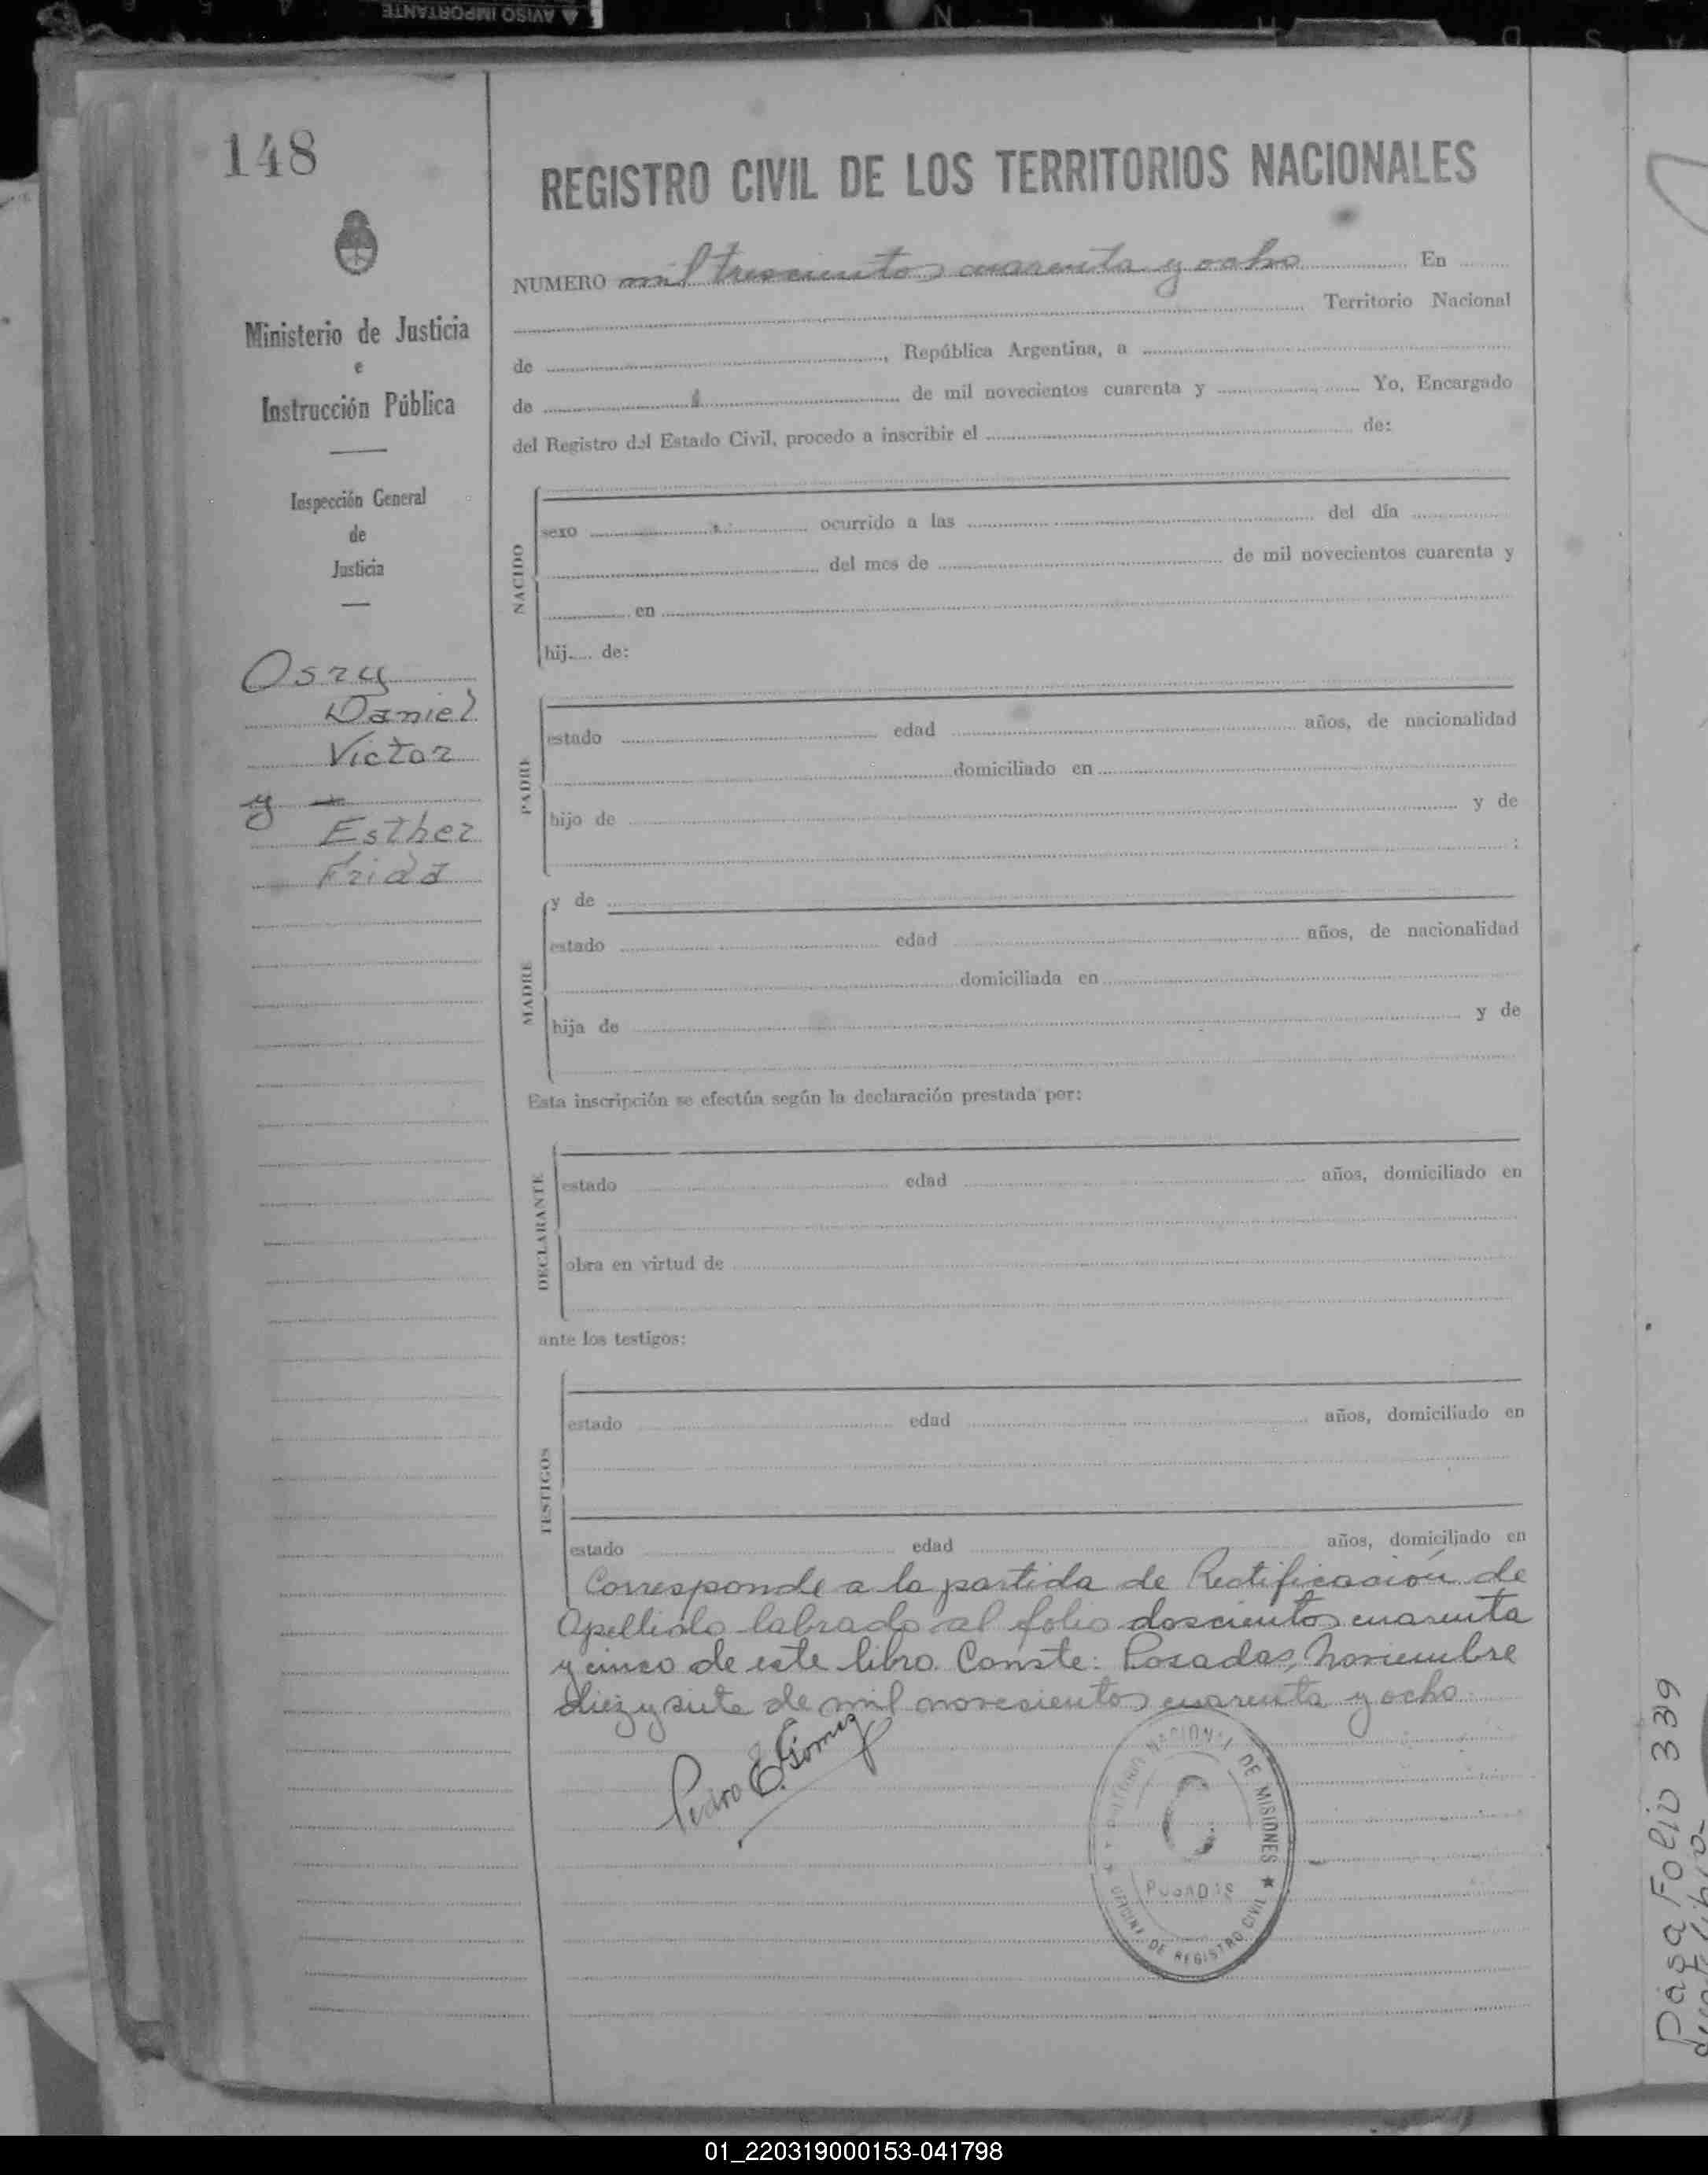 AVISO IMPORTANTE
148
Ministerio de Justicia
e
Instrucción Pública
Inspección General
de
Justicia
Osry
Daniel
Victor
y
Esther
Frida
REGISTRO CIVIL DE LOS TERRITORIOS NACIONALES
NUMERO mil trescientos cuarenta y ocho En
Territorio Nacional
de , República Argentina, a
de de mil novecientos cuarenta y Yo, Encargado
del Registro del Estado Civil, procedo a inscribir el de:
NACIDO
sexo ocurrido a las del día
del mes de de mil novecientos cuarenta y
en
hij de:
PADRE
estado edad años, de nacionalidad
domiciliado en
hijo de y de
;
MADRE
y de
estado edad años, de nacionalidad
domiciliada en
hija de y de
Esta inscripción se efectúa según la declaración prestada por:
DECLARANTE
estado edad años, domiciliado en
obra en virtud de
ante los testigos:
TESTIGOS
estado edad años, domiciliado en
estado edad años, domiciliado en
Corresponde a la partida de Rectificación de
Apellido labrado al folio doscientos cuarenta
y cinco de este libro. Conste: Posadas, Noviembre
diez y siete de mil novecientos cuarenta y ocho.
Pedro E. Gomez
TERRITORIO NACIONAL DE MISIONES
POSADAS
OFICINA DE REGISTRO CIVIL
Pasa Folio 339
01_220319000153-041798